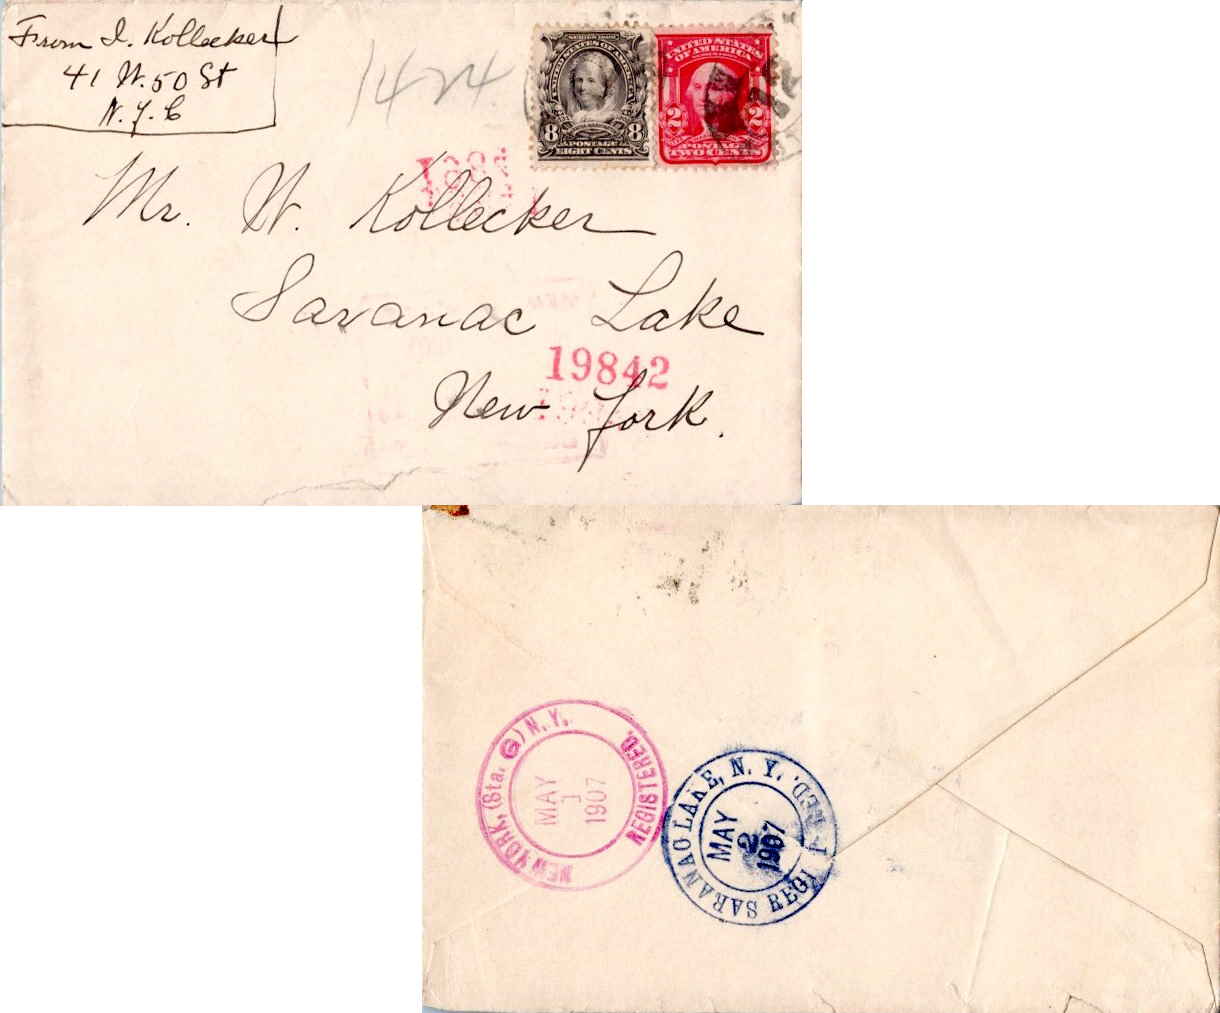 From I. Kollecker
41 W. 50 St
N. Y. C
1424
SERIES 1902
UNITED STATES OF AMERICA
8 8
POSTAGE
EIGHT CENTS
UNITED STATES
OF AMERICA
2 2
POSTAGE
TWO CENTS
Mr. W. Kollecker
Saranac Lake
19842
New York.
NEW YORK, (Sta. G) N. Y.
REGISTERED.
MAY
1
1907
SARANAC LAKE, N. Y.
MAY
2
1907